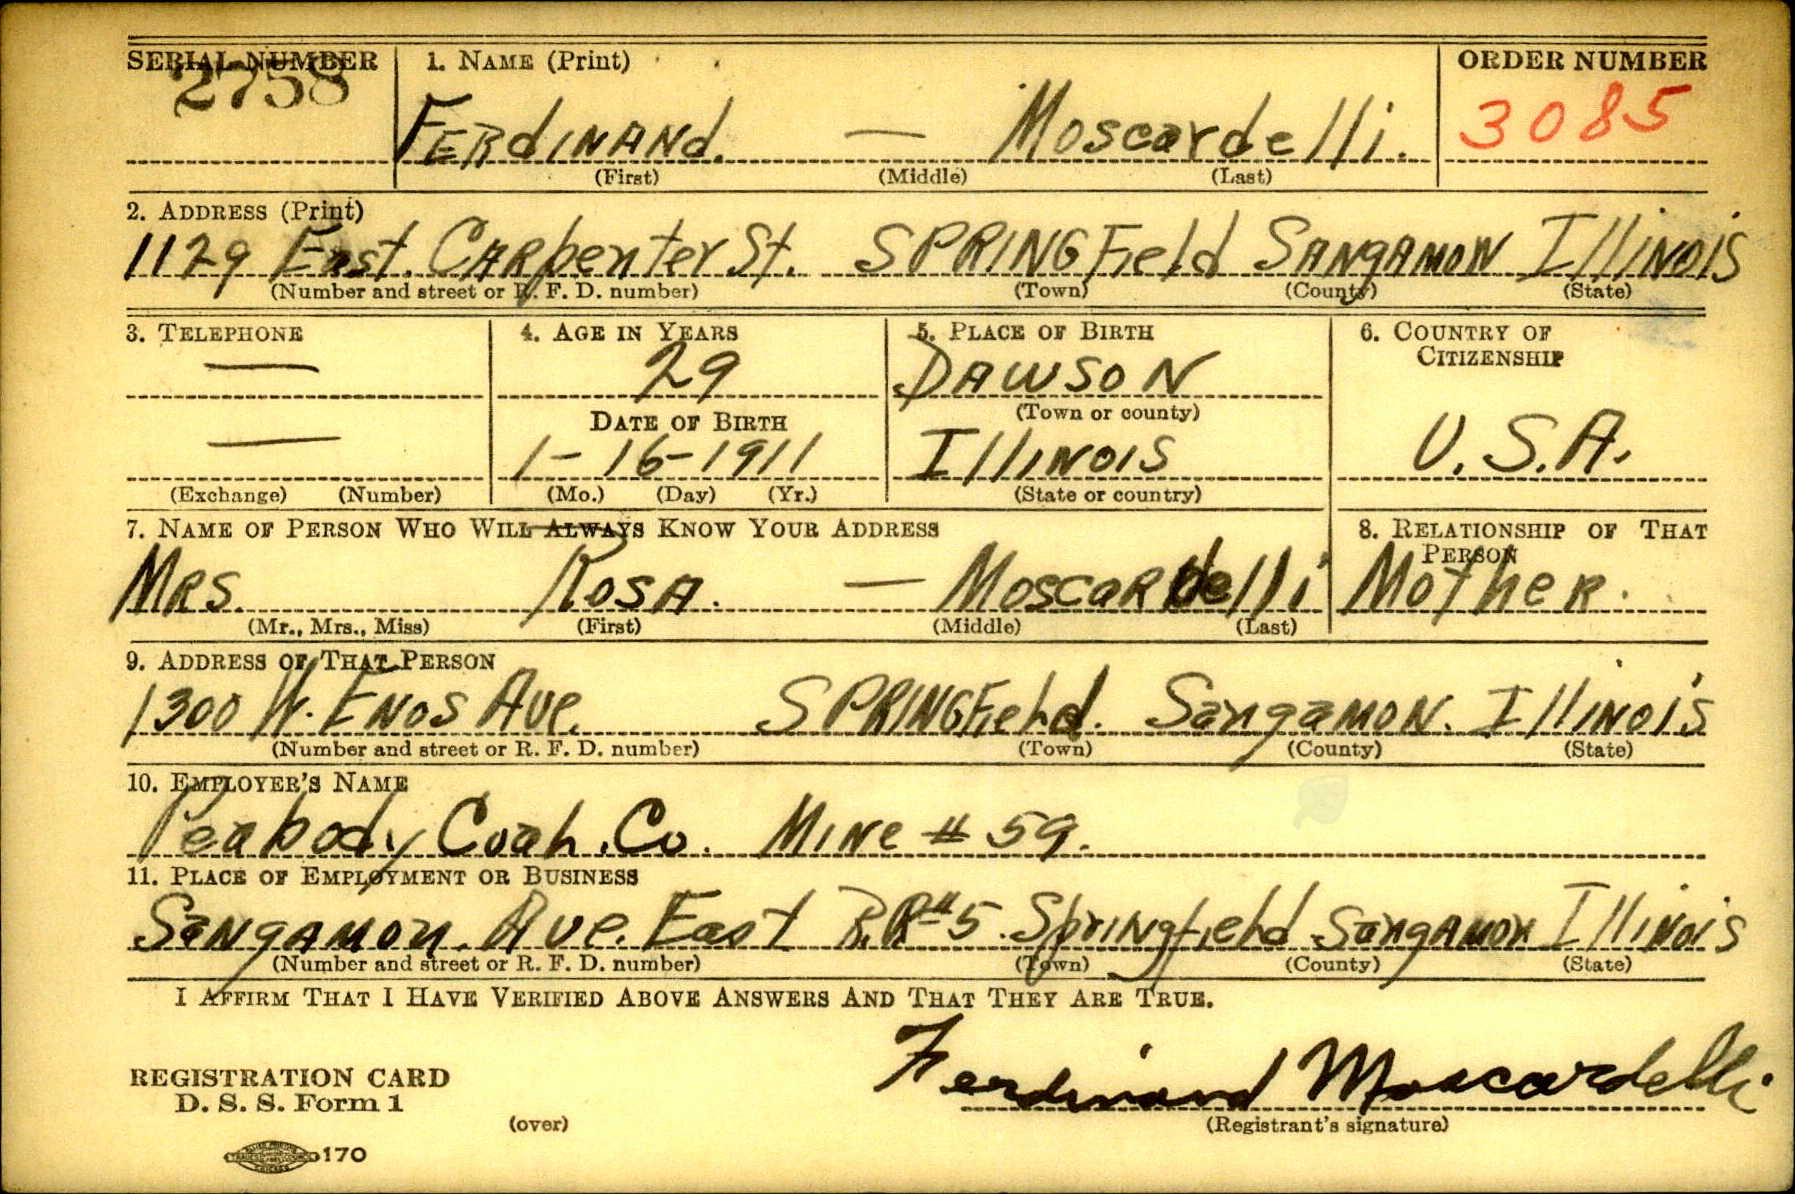 SERIAL NUMBER 1. NAME (Print) ORDER NUMBER
2758 FERdINANd. — Moscardelli. 3085
(First) (Middle) (Last)
2. ADDRESS (Print)
1129 East. CARpenter St. SPRINGField SANgAMON IllINOIS
(Number and street or R. F. D. number) (Town) (County) (State)
3. TELEPHONE 4. AGE IN YEARS 5. PLACE OF BIRTH 6. COUNTRY OF CITIZENSHIP
— 29 DAWSON
(Town or county)
DATE OF BIRTH
— 1-16-1911 IllINOIS U.S.A.
(Exchange) (Number) (Mo.) (Day) (Yr.) (State or country)
7. NAME OF PERSON WHO WILL ALWAYS KNOW YOUR ADDRESS 8. RELATIONSHIP OF THAT PERSON
MRS. ROSA. — MOSCARdelli MotheR.
(Mr., Mrs., Miss) (First) (Middle) (Last)
9. ADDRESS OF THAT PERSON
1300 W. ENOS AVe. SPRINGField. SangaMON. IllINOIS
(Number and street or R. F. D. number) (Town) (County) (State)
10. EMPLOYER'S NAME
Peabody Coal. Co. MINe # 59.
11. PLACE OF EMPLOYMENT OR BUSINESS
SaNgAMON. AVe. East R.R#5. SpRINgfield SangAMON IllINOIS
(Number and street or R. F. D. number) (Town) (County) (State)
I AFFIRM THAT I HAVE VERIFIED ABOVE ANSWERS AND THAT THEY ARE TRUE.
Ferdinand Moscardelli
REGISTRATION CARD
D. S. S. Form 1
(over) (Registrant's signature)
170